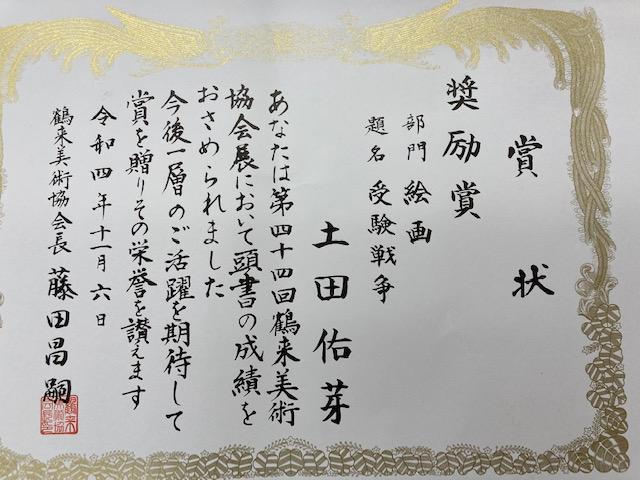 賞状
奨励賞
部門 絵画
題名 受験戦争
土田佑芽
あなたは第四十四回鶴来美術
協会展において頭書の成績を
おさめられました
今後一層のご活躍を期待して
賞を贈りその栄誉を讃えます
令和四年十一月六日
鶴来美術協会長 藤田昌嗣